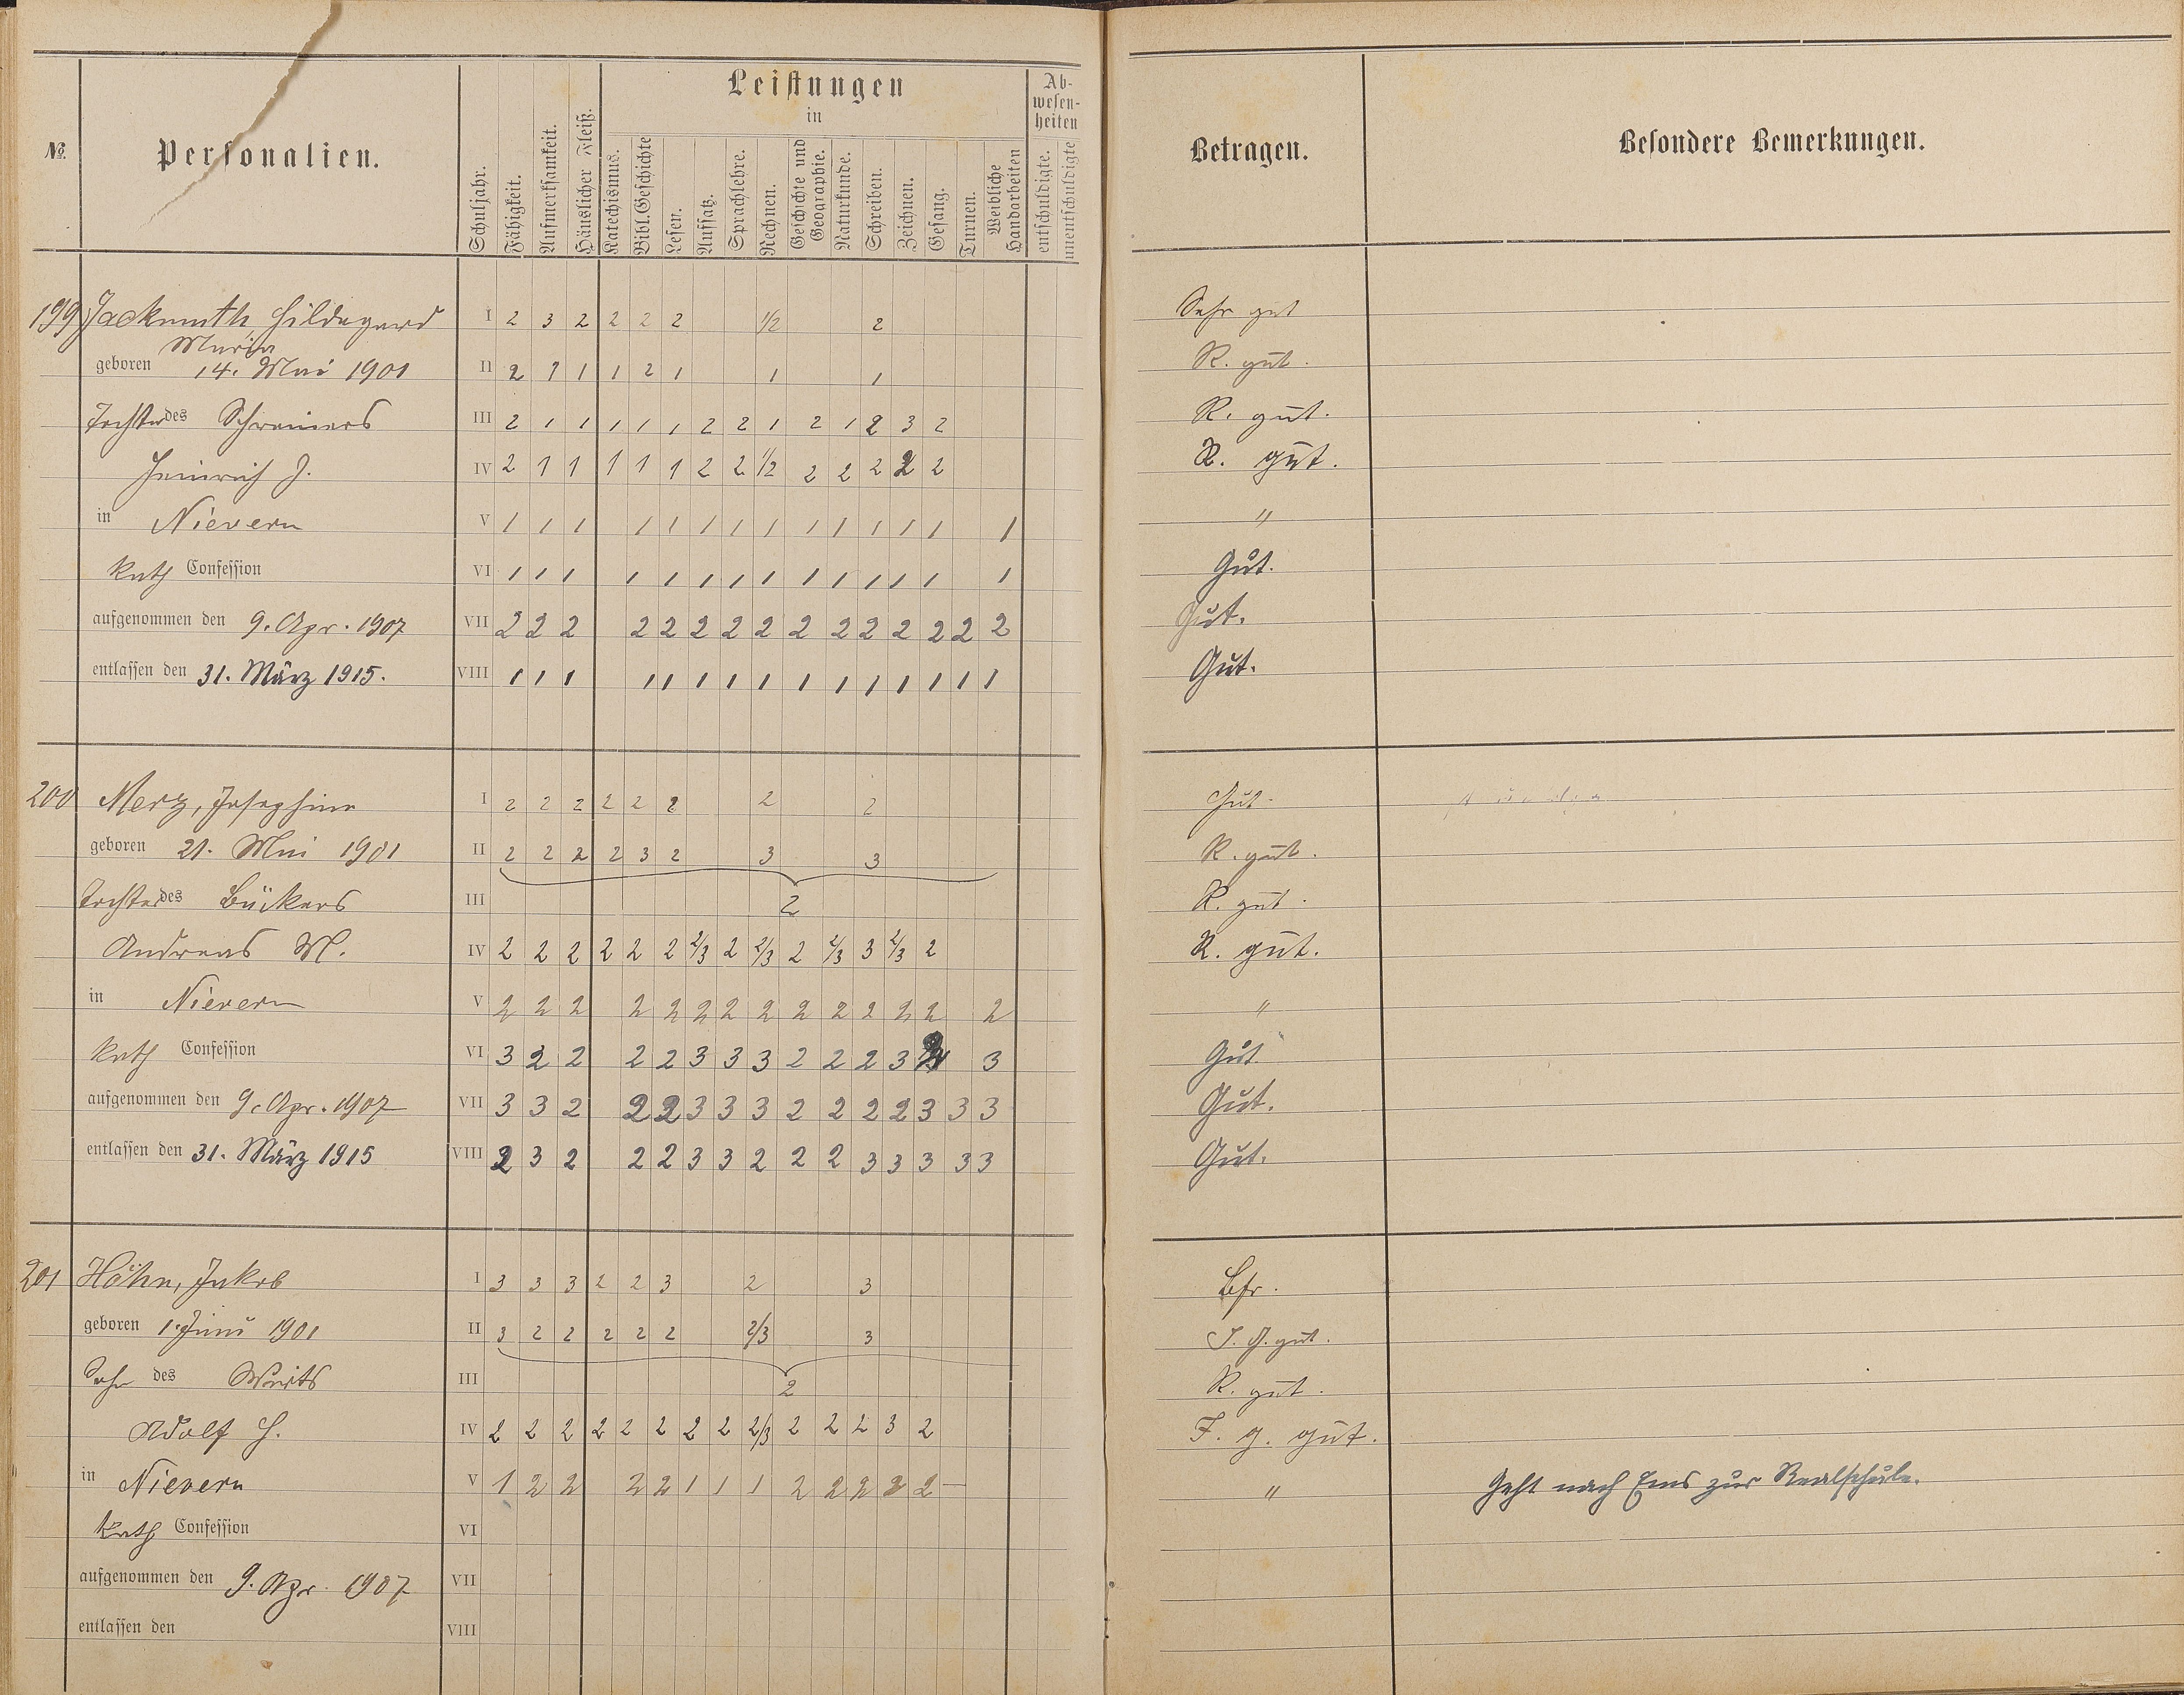 №.
Personalien.
Schuljahr.
Fähigkeit.
Aufmerksamkeit.
Häuslicher Fleiß.
Leistungen
in
Katechismus.
Bibl. Geschichte
Lesen.
Aufsatz.
Sprachlehre.
Rechnen.
Geschichte und Geographie.
Naturkunde.
Schreiben.
Zeichnen.
Gesang.
Turnen.
Weibliche Handarbeiten
Ab-
wesen-
heiten
entschuldigte.
unentschuldigte
Betragen.
Besondere Bemerkungen.
199 Jackmuth, Hildegard I 2 3 2 2 2 2 1/2 2 Sehr gut
Maria
geboren 14. Mai 1901 II 2 1 1 1 2 1 1 1 R. gut.
Tochter des Schreiners III 2 1 1 1 1 1 2 2 1 2 1 2 3 2 R. gut.
Heinrich J. IV 2 1 1 1 1 1 2 2 1/2 2 2 2 2 2 R. gut.
in Nievern V 1 1 1 1 1 1 1 1 1 1 1 1 1 1 "
kath Confession VI 1 1 1 1 1 1 1 1 1 1 1 1 1 1 Gut.
aufgenommen den 9. Apr. 1907 VII 2 2 2 2 2 2 2 2 2 2 2 2 2 2 2 Gut.
entlassen den 31. März 1915. VIII 1 1 1 1 1 1 1 1 1 1 1 1 1 1 1 Gut.
200 Merz, Josephine I 2 2 2 2 2 2 2 2 Gut.
geboren 21. Mai 1901 II 2 2 2 2 3 2 3 3 R. gut.
Tochter des Bäckers III 2 R. gut.
Andreas M. IV 2 2 2 2 2 2 2/3 2 2/3 2 2/3 3 2/3 2 R. gut.
in Nievern V 2 2 2 2 2 2 2 2 2 2 2 2 2 2 "
kath Confession VI 3 2 2 2 2 3 3 3 2 2 2 3 3 Gut
aufgenommen den 9. Apr. 1907 VII 3 3 2 2 2 3 3 3 2 2 2 2 3 3 3 Gut.
entlassen den 31. März 1915 VIII 2 3 2 2 2 3 3 2 2 2 3 3 3 3 3 Gut.
201 Höhn, Jakob I 3 3 3 2 2 3 2 3 Bfr.
geboren 1. Juni 1901 II 3 2 2 2 2 2 2/3 3 I. g. gut.
Sohn des Wirts III 2 R. gut.
Adolf H. IV 2 2 2 2 2 2 2 2 2/3 2 2 2 3 2 I. g. gut.
in Nievern V 1 2 2 2 2 1 1 1 2 2 2 2 2 — " Geht nach Ems zur Realschule.
kath Confession VI
aufgenommen den 9. Apr. 1907 VII
entlassen den VIII